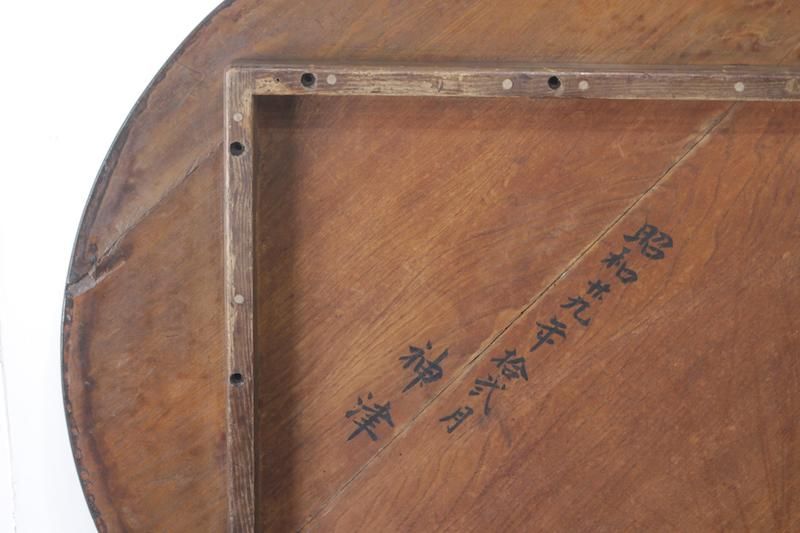 昭和廿九年拾弐月
神津